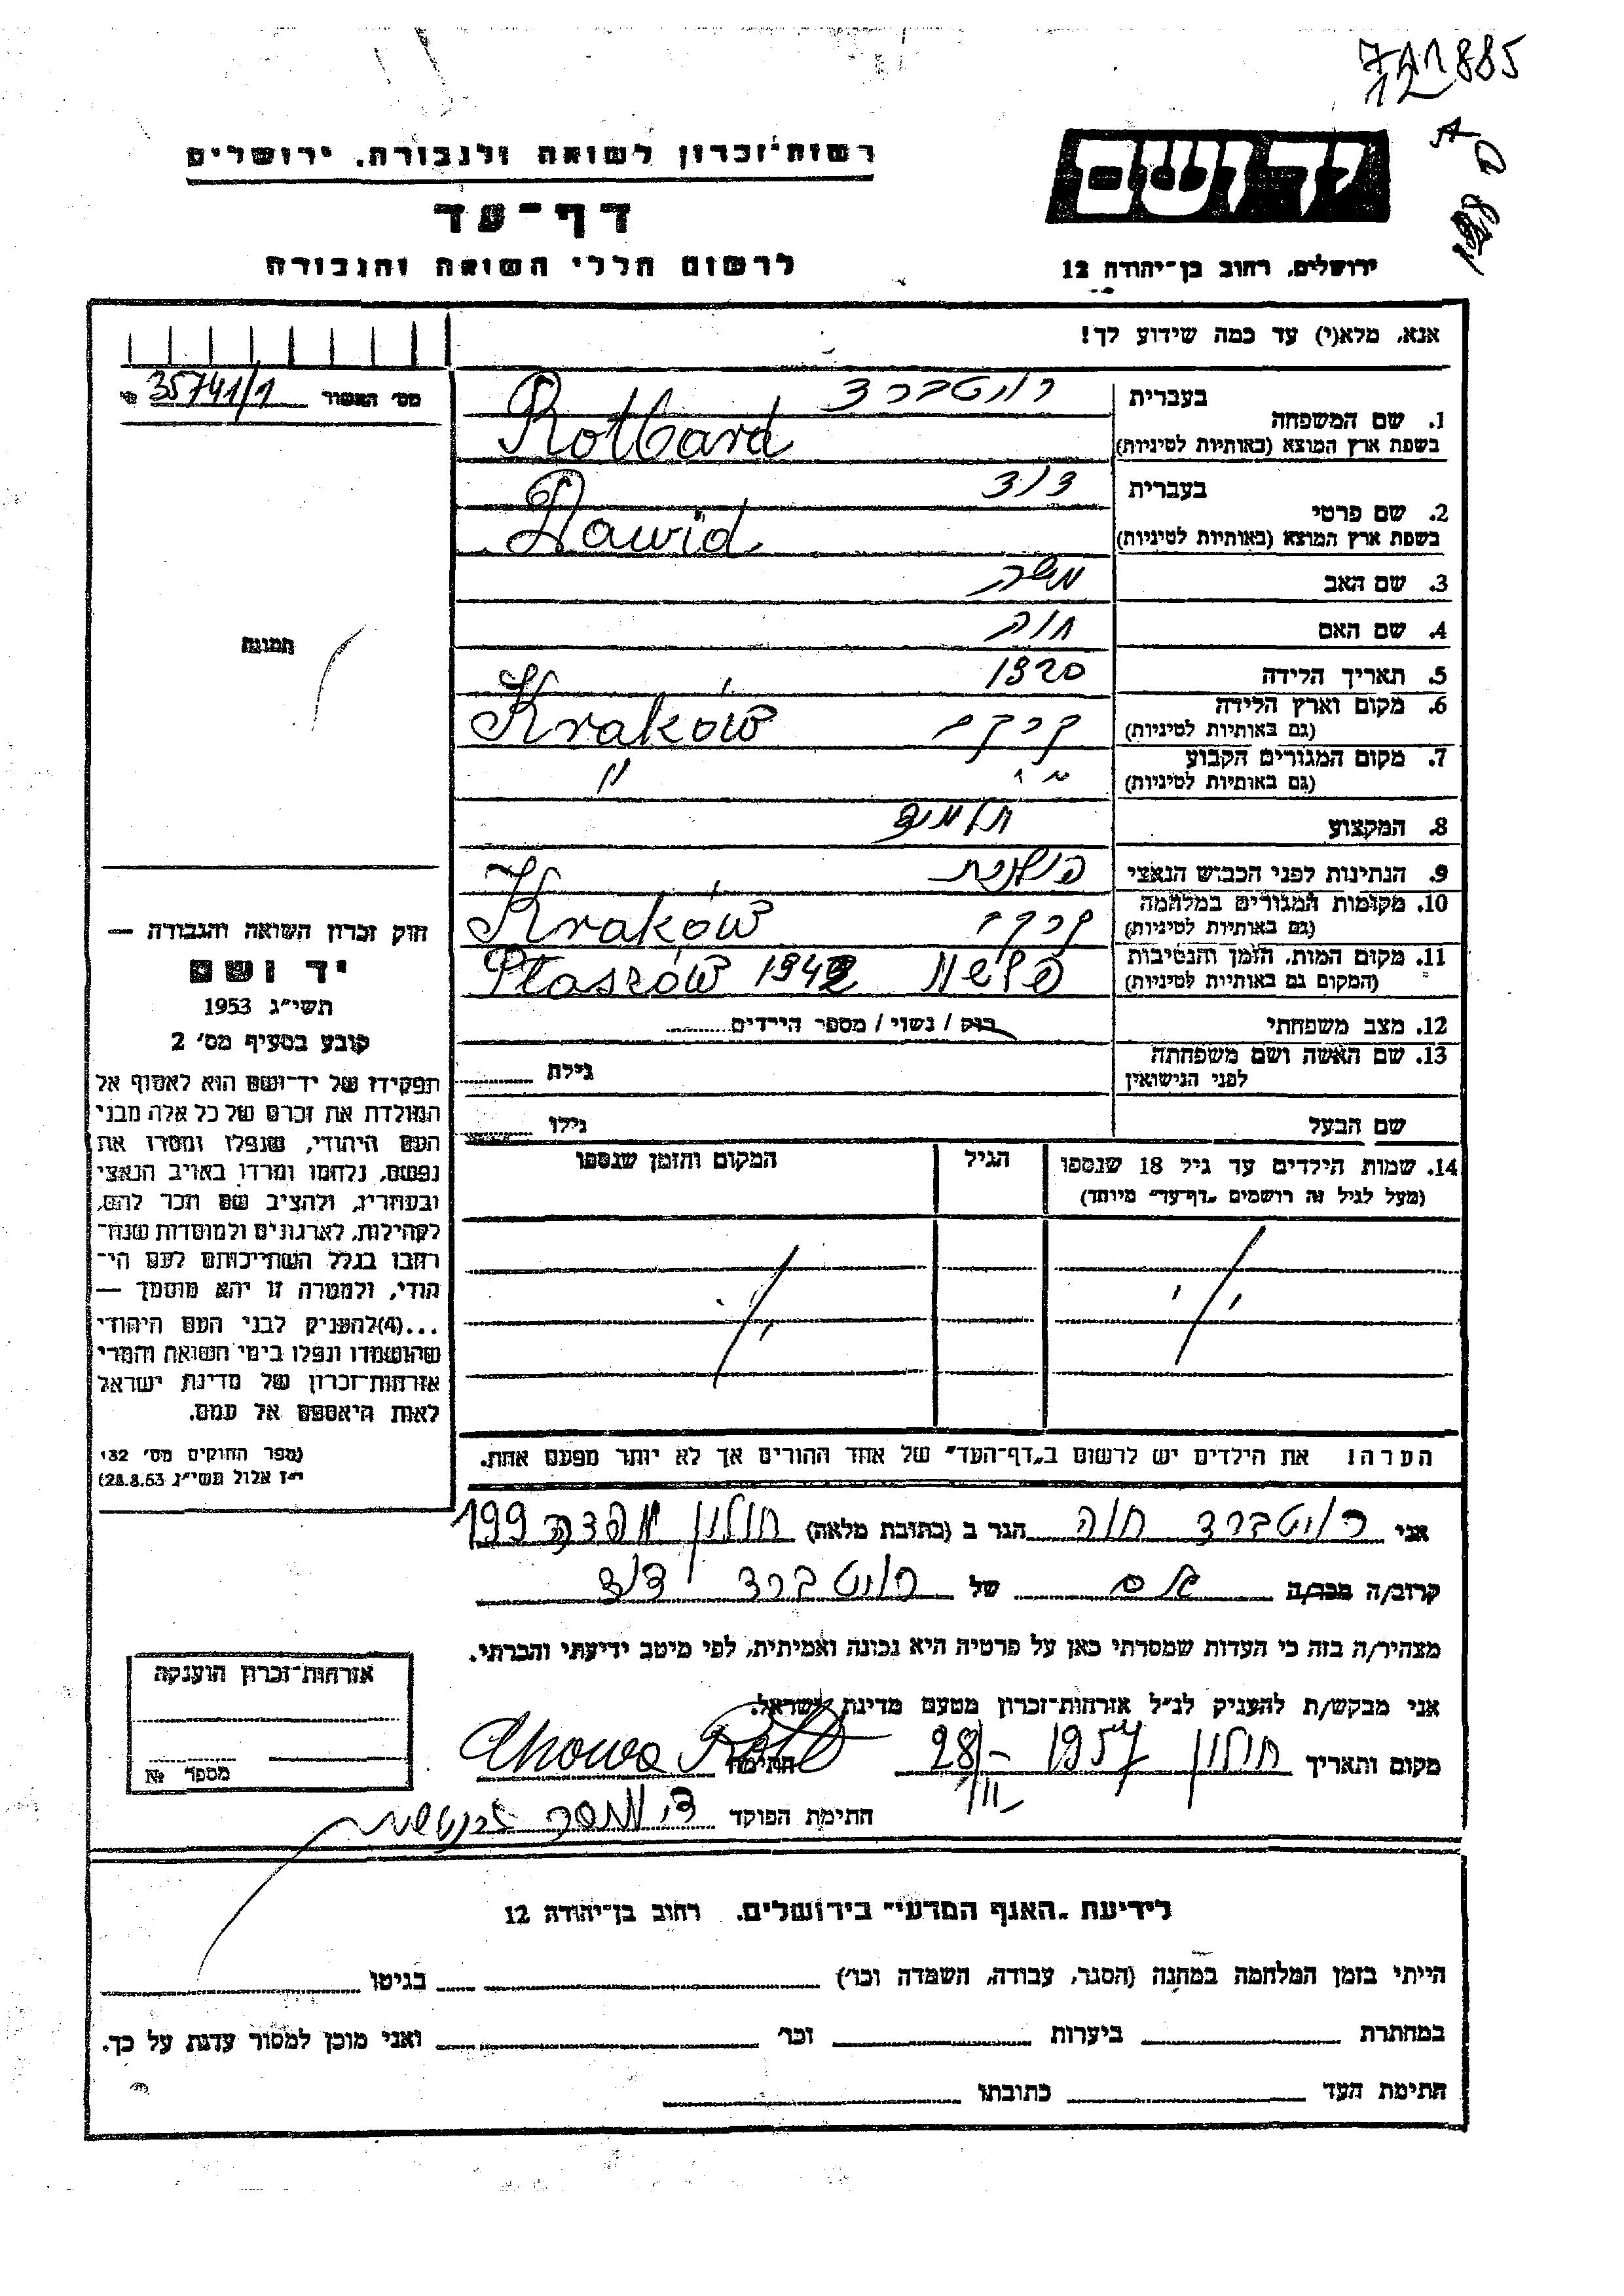 רשות־זכרון לשואה ולגבורה, ירושלים
דף־עד
לרשום חללי השואה והגבורה
יד ושם
ירושלים, רחוב בן־יהודה 12
אנא, מלא(י) עד כמה שידוע לך!
מס׳ האשור 35741/1
1. שם המשפחה
בעברית רוטברד
בשפת ארץ המוצא (באותיות לטיניות) Rotbard
2. שם פרטי
בעברית דוד
בשפת ארץ המוצא (באותיות לטיניות) Dawid
3. שם האב משה
4. שם האם חוה
5. תאריך הלידה 1920
6. מקום וארץ הלידה
(גם באותיות לטיניות) קרקב Kraków
7. מקום המגורים הקבוע
(גם באותיות לטיניות) " "
8. המקצוע תלמיד
9. הנתינות לפני הכבוש הנאצי פולנית
10. מקומות המגורים במלחמה
(גם באותיות לטיניות) קרקב Kraków
11. מקום המות, הזמן והנסיבות
(המקום גם באותיות לטיניות) Płaszów 1942
12. מצב משפחתי רוק / נשוי / מספר הילדים
13. שם האשה ושם משפחתה
לפני הנישואין גילה
שם הבעל גילו
14. שמות הילדים עד גיל 18 שנספו הגיל המקום והזמן שנספו
(מעל לגיל זה רושמים „דף־עד״ מיוחד)
הערה! את הילדים יש לרשום ב„דף־העד״ של אחד ההורים אך לא יותר מפעם אחת.
תמונה
חוק זכרון השואה והגבורה —
יד ושם
תשי״ג 1953
קובע בסעיף מס׳ 2
תפקידו של יד־ושם הוא לאסוף אל
המולדת את זכרם של כל אלה מבני
העם היהודי, שנפלו ומסרו את
נפשם, נלחמו ומרדו באויב הנאצי
ובעוזריו, ולהציב שם וזכר להם,
לקהילות, לארגונים ולמוסדות שנח־
רבו בגלל השתייכותם לעם הי־
הודי, ולמטרה זו יהא מוסמך —
...(4)להעניק לבני העם היהודי
שהושמדו ונפלו בימי השואה והמרי
אזרחות־זכרון של מדינת ישראל
לאות היאספם אל עמם.
(ספר החוקים מס׳ 132
י״ז אלול תשי״ג 28.8.53)
אני רוטברד חוה הגר ב (כתובת מלאה) חולון 199
קרוב/ה מכר/ה אם של רוטברד דוד
מצהיר/ה בזה כי העדות שמסרתי כאן על פרטיה היא נכונה ואמיתית, לפי מיטב ידיעתי והכרתי.
אני מבקש/ת להעניק לנ״ל אזרחות־זכרון מטעם מדינת ישראל.
מקום ותאריך חולון 1957 28/III חתימה Chowa Rotb
חתימת הפוקד
אזרחות־זכרון הוענקה
מספר №
לידיעת „האגף המדעי״ בירושלים, רחוב בן־יהודה 12
הייתי בזמן המלחמה במחנה (הסגר, עבודה, השמדה וכו׳) בגיטו
במחתרת ביערות וכו׳ ואני מוכן למסור עדות על כך.
חתימת העד כתובתו